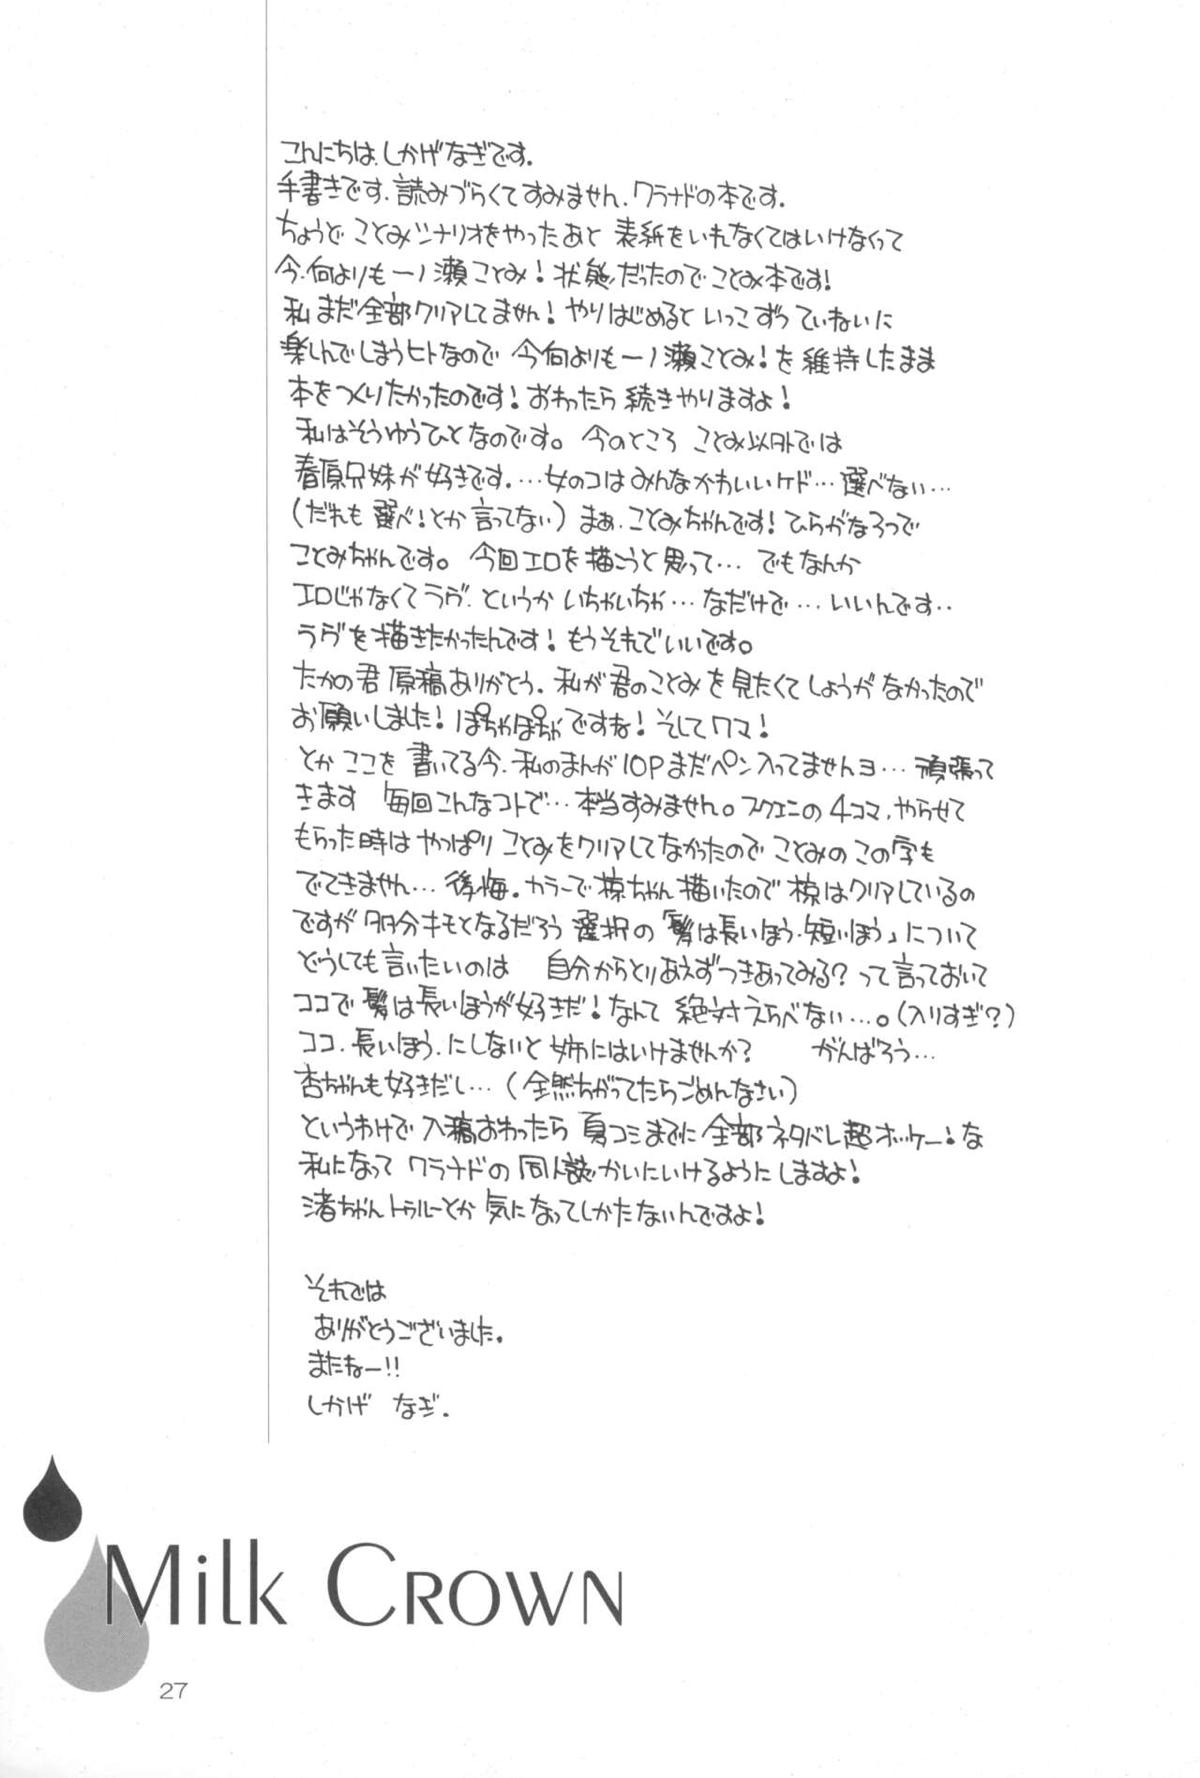 こんにちは、しかげなぎです.
手書きです.読みづらくてすみません.クラナドの本です.
ちょうど ことみシナリオをやったあと 表紙をいれなくてはいけなくって
今.何よりも一ノ瀬ことみ!状態だったのでことみ本です!
私 まだ全部クリアしてません!やりはじめると いっこずつ ていねいに
楽しんでしまうヒトなので 今何よりも一ノ瀬ことみ!を維持したまま
本をつくりたかったのです!おわったら続きやりますよ!
私はそうゆうひとなのです。今のところ ことみ以外では
春原兄妹が好きです.…女のコはみんなかわいいケド…選べない…
(だれも 選べ!とか言ってない) まぁ.ことみちゃんです!ひらがなみっつで
ことみちゃんです。今回エロを描こうと思って… でもなんか
エロじゃなくてラヴ.というか いちゃいちゃ…なだけで…いいんです‥
ラヴを描きたかったんです!もうそれでいいです。
たかの君 原稿ありがとう.私が君のことみを見たくてしょうがなかったので
お願いしました!ぽちゃぽちゃですね!そしてクマ!
とか ここを 書いてる今.私のまんが10Pまだペン入ってませんヨ…頑張って
きます 毎回こんなコトで…本当すみません。スクエニの4コマ.やらせて
もらった時は やっぱり ことみをクリアしてなかったので ことみのこの字も
でてきません…後悔.カラーで椋ちゃん描いたので 椋はクリアしているの
ですが 多分キモとなるだろう 選択の「髪は長いほう・短いほう」について
どうしても言いたいのは 自分からとりあえずつきあってみる?って言っておいて
ココで 髪は長いほうが好きだ!なんて 絶対えらべない…。(入りすぎ?)
ココ.長いほう.にしないと 姉にはいけませんか? がんばろう…
杏ちゃんも好きだし…(全然ちがってたらごめんなさい)
というわけで 入稿おわったら 夏コミまでに 全部ネタバレ超オッケー!な
私になって クラナドの 同人誌かいにいけるようにしますよ!
渚ちゃん トゥルーとか 気になってしかたないんですよ!
それでは
ありがとうございました.
またねー!!
しかげ なぎ.
Milk Crown
27